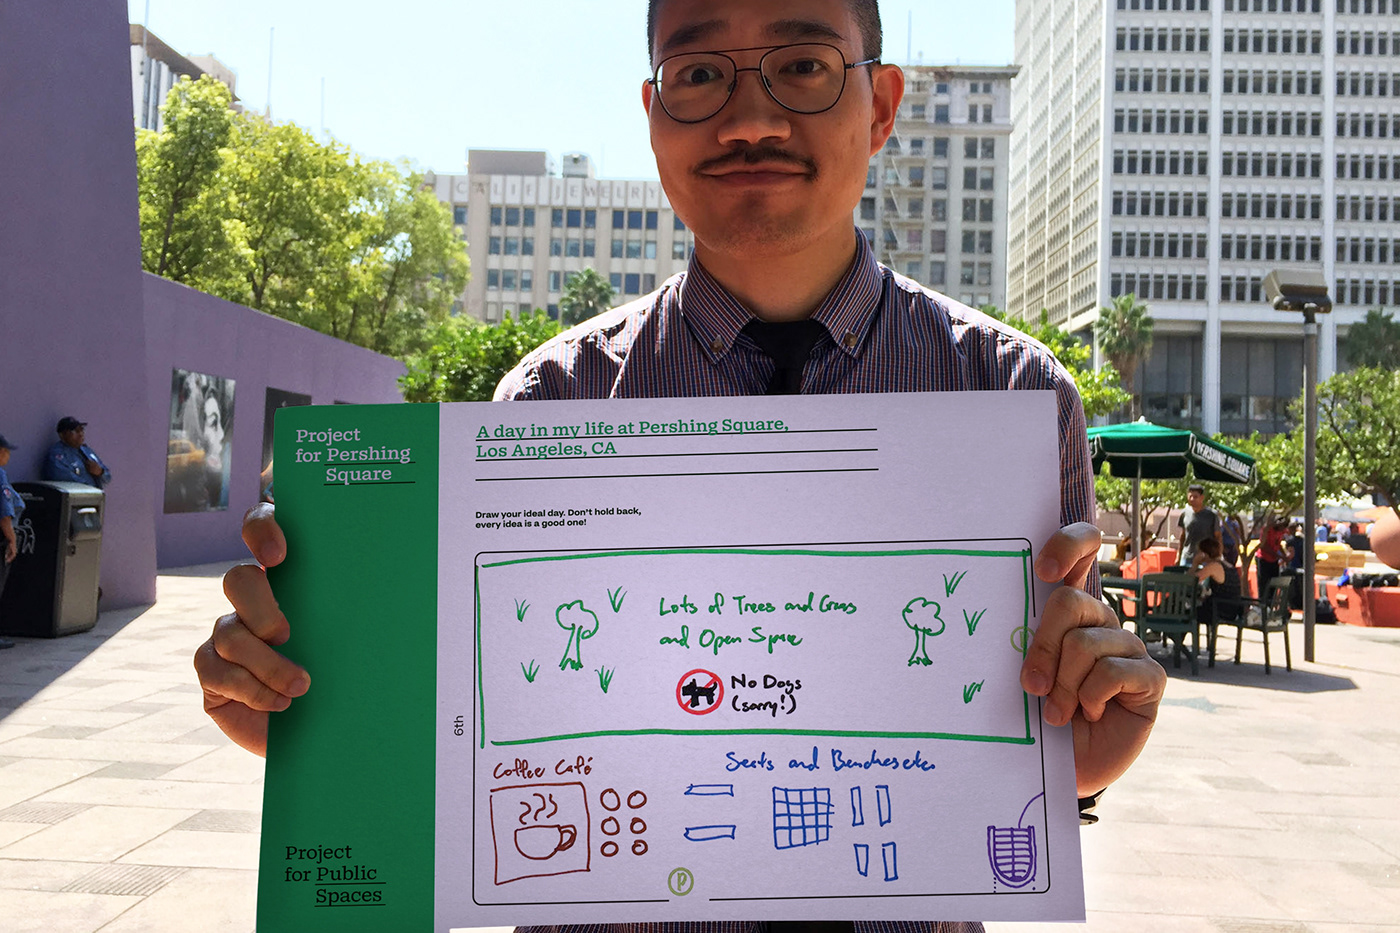 CALIF. JEWELRY
PERSHING SQUARE
Project
for Pershing
Square
A day in my life at Pershing Square,
Los Angeles, CA
Draw your ideal day. Don't hold back,
every idea is a good one!
Lots of Trees and Grass
and Open Space
No Dogs
(sorry!)
6th
Coffee Café
Seats and Benches etc
P
P
Project
for Public
Spaces